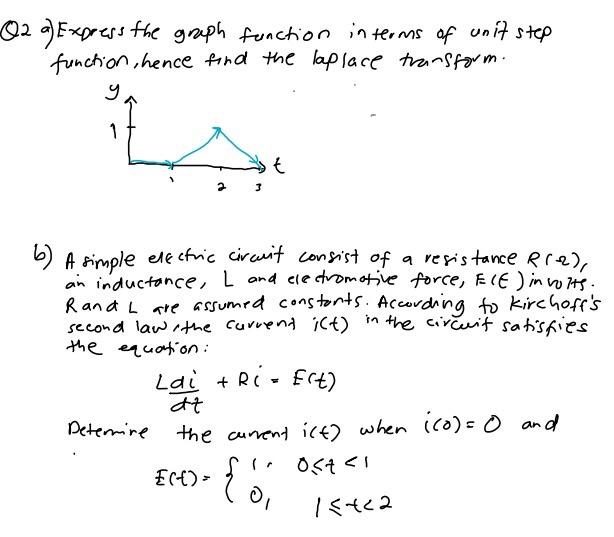 Q2 a) Express the graph function in terms of unit step
function, hence find the laplace transform.
y
1
t
1 2 3
b) A simple electric circuit consist of a resistance R (Ω),
an inductance, L and electromotive force, E(t) in volts.
R and L are assumed constants. According to Kirchoff's
second law, the current i(t) in the circuit satisfies
the equation:
L di/dt + Ri = E(t)
Determine the current i(t) when i(0) = 0 and
E(t) = { 1, 0 ≤ t < 1
0, 1 ≤ t < 2